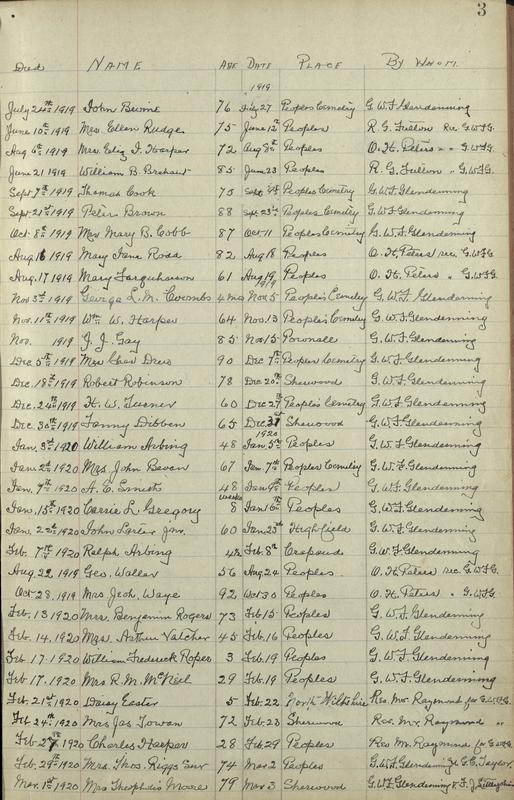 3
Died NAME AGE DATE PLACE BY WHOM
1919
July 24th 1919 John Bwine 76 July 27 Peoples Cemetery G.W.F. Glendenning
June 10th 1919 Mrs. Ellen Rudge 75 June 12th Peoples R.G. Fulton Rec. G.W.F.G.
Aug 6th 1919 Mrs. Eliz. I. Harper 72 Aug 8th Peoples O.H. Peters " " G.W.F.G.
June 21 1919 William B. Brehaut 85 June 23 Peoples R.G. Fulton " G.W.F.G.
Sept 7th 1919 Thomas Cook 75 Sept Peoples Cemetery G.W.F. Glendenning
Sept. 21st 1919 Peter Brown 88 Sept. 23rd Peoples Cemetery G.W.F. Glendenning
Oct. 8th 1919 Mrs Mary B. Cobb 87 Oct 11 Peoples Cemetery G.W.F. Glendenning
Aug 16 1919 Mary Jane Ross 82 Aug 18 Peoples O.H. Peters rec. G.W.F.G.
Aug. 17 1919 Mary Farquharson 61 Aug 19 1919 Peoples O.H. Peters " G.W.F.G.
Nov 3rd 1919 George L. M. Coombs 4 mos Nov 5 People's Cemetery G.W.F. Glendenning
Nov. 11th 1919 Wm. W. Harper 64 Nov. 13 People's Cemetery G.W.F. Glendenning
Nov. 1919 J. J. Gay 85 Nov 15 Pownall G.W.F. Glendenning
Dec 5th 1919 Mrs Chas Drew 90 Dec 7th Peoples Cemetery G.W.F. Glendenning
Dec. 18th 1919 Robert Robinson 78 Dec 20th Sherwood G.W.F. Glendenning
Dec. 24th 1919 H. W. Turner 60 Dec 27th People's Cemetery G.W.F. Glendenning
Dec. 30th 1919 Fanny Dibben 65 Dec 31st Sherwood G.W.F. Glendenning
1920
Jan. 3rd 1920 William Arbing 48 Jan 5th Peoples G.W.F. Glendenning
Jan. 2nd 1920 Mrs. John Bevan 67 Jan. 7th Peoples Cemetery G.W.F. Glendenning
Jan. 7th 1920 A. E. Smith 48 Jan 9th Peoples G.W.F. Glendenning
Jan. 15th 1920 Carrie L. Gregory weeks 8 Jan 16th Peoples G.W.F. Glendenning
Jan. 22nd 1920 John Jnr. 60 Jan 25th Highfield G.W.F. Glendenning
Feb. 7th 1920 Ralph Arbing Feb. 8th Crapaud G.W.F. Glendenning
Aug. 22 1919 Geo. Waller 56 Aug 24 Peoples. O.H. Peters rec. G.W.F.G.
Oct. 28. 1919 Mrs. Jeoh. Waye 92 Oct 30 Peoples O.H. Peters " G.W.F.G.
Feb. 13 1920 Mrs. Benjamin Rogers 73 Feb 15 Peoples G.W.F. Glendenning
Feb. 14. 1920 Mrs. Arthur Vatcher 45 Feb. 16 Peoples G.W.F. Glendenning
Feb 17. 1920 William Federick Roper 3 Feb. 19 Peoples G.W.F. Glendenning
Feb 17. 1920 Mrs R. M. McNeil 29 Feb. 19 Peoples G.W.F. Glendenning
Feb 21st 1920 Daisy Easter 5 Feb. 22 North Wiltshire Rev. Mr. Raymond for G.W.F.G.
Feb 24th 1920 Mrs Jas Towan 72 Feb 23 Sherwood Rev. Mr Raymond "
Feb 27 1920 Charles Harper 28 Feb 29 Peoples Rev Mr Raymond for G.W.F.G.
Feb. 29th 1920 Mrs. Thos. Riggs Snr 74 Mar 2 Peoples G.W.F. Glendenning & G.C. Taylor.
Mar. 1st 1920 Mrs Theophilus Moore 79 Mar 3 Sherwood G.W.F. Glendenning & F.J.